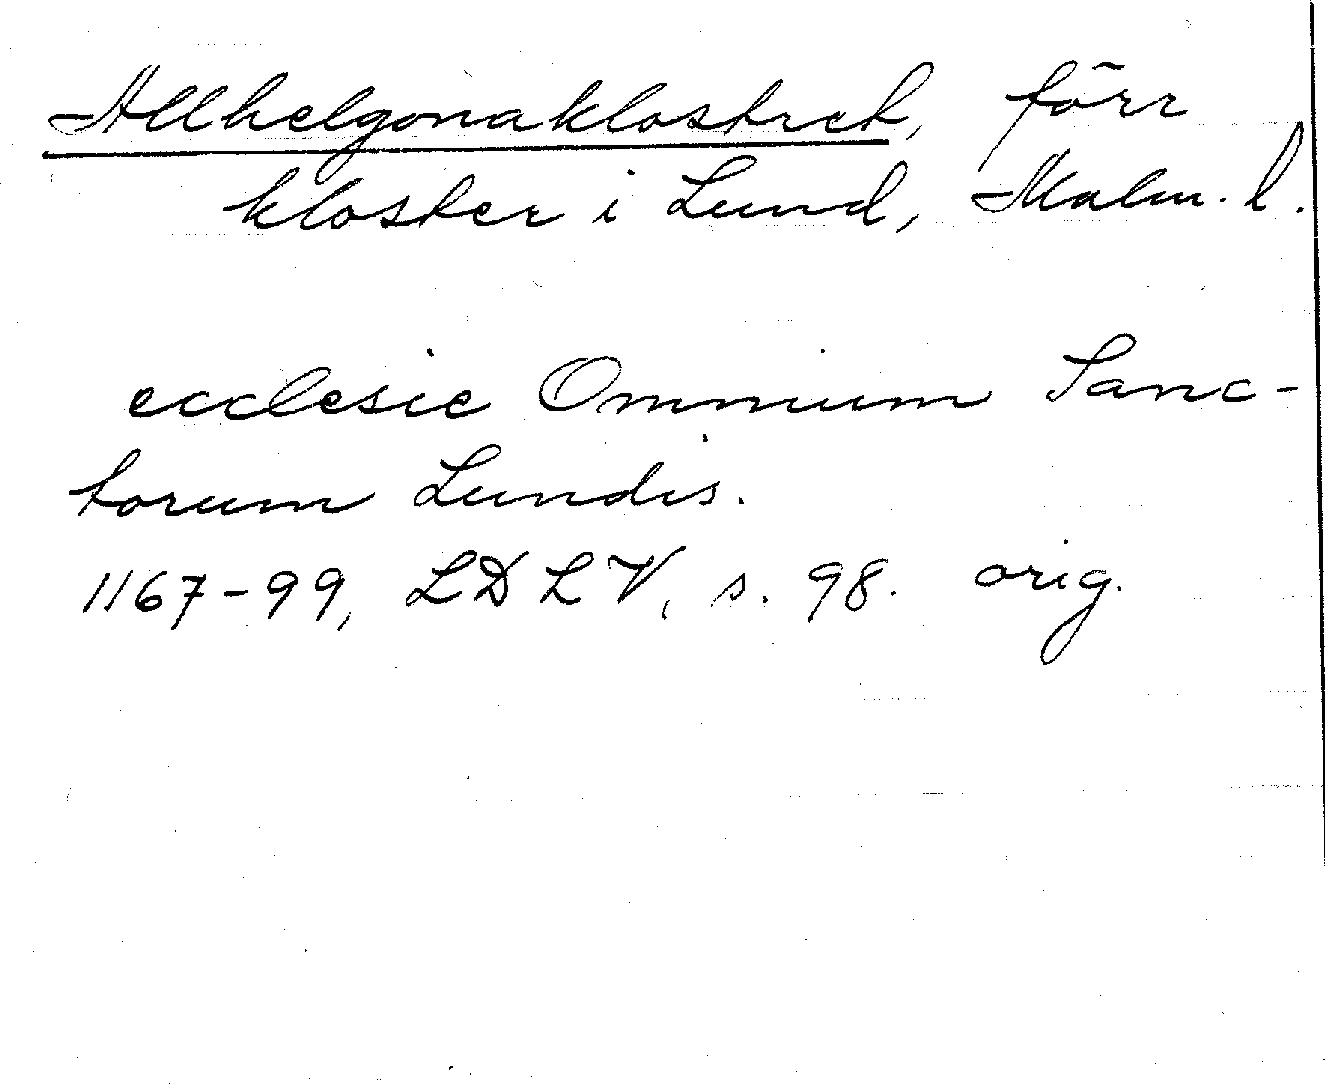 Allhelgonaklostret, förr
kloster i Lund, Malm. l.
ecclesie Omnium Sanc-
torum Lundis.
1167-99, LDLV, s. 98. orig.